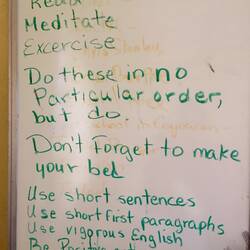 Read
Meditate
Excercise
Do these in no
Particular order,
but do
Don't Forget to make
your bed
Use short sentences
Use short first paragraphs
Use vigorous English
Be Positive